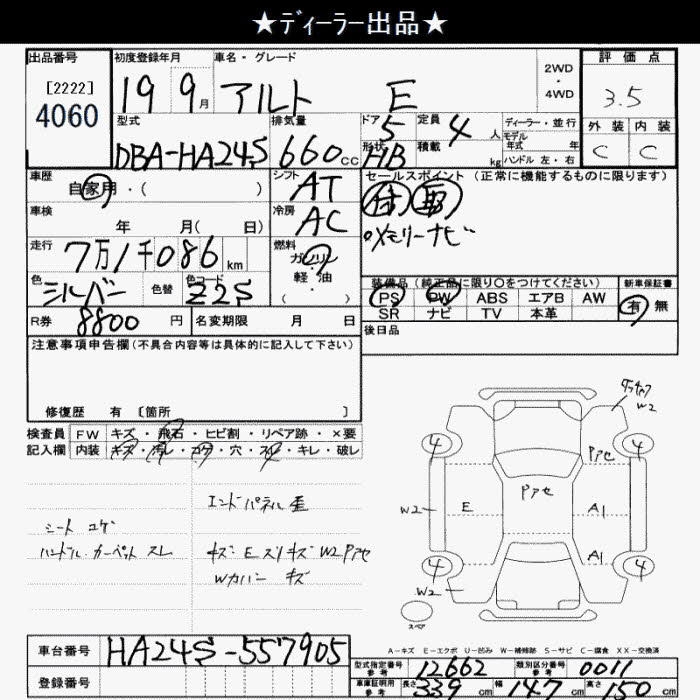 ★ディーラー出品★
出品番号
[2222]
4060
初度登録年月
19 9月
車名・グレード
アルト E
2WD
・
4WD
評価点
3.5
外装 内装
C C
型式
DBA-HA24S
排気量
660cc
ドア
5
形状
HB
定員
4人
積載
kg
ディーラー・並行
モデル
年式 年
ハンドル 左・右
車歴
自家用・( )
シフト
AT
セールスポイント (正常に機能するものに限ります)
車検
年 月( 日)
冷房
AC
メモリーナビ
走行
7万1千086km
燃料
ガソリン
軽・油
( )
色
シルバー
色替
色コード
Z2S
装備品 (純正品に限り〇をつけてください)
新車保証書
PS PW ABS エアB AW
SR ナビ TV 本革
有 無
R券
8800円
名変期限 月 日
後日品
注意事項申告欄(不具合内容等は具体的に記入して下さい)
修復歴 有 〔箇所 〕
検査員 FW キズ・飛石・ヒビ割・リペア跡・×要
記入欄 内装 キズ・汚レ・コゲ・穴・スレ・キレ・破レ
エンドパネル歪
シート コゲ
ハンドル カーペット スレ
キズ E スリキズ W2 Pアセ
Wカバー キズ
W2
4 4
Pアセ
Pアセ
W2 E A1
A1
4 4
W2
スペア
A-キズ E-エクボ U-凹み W-補修跡 S-サビ C-腐食 XX-交換済
車台番号
HA24S-557905
登録番号
型式指定番号
参考
12662
類別区分番号
参考
0011
車庫証明用
参考
長さ 339cm 幅 147cm 高さ 150cm